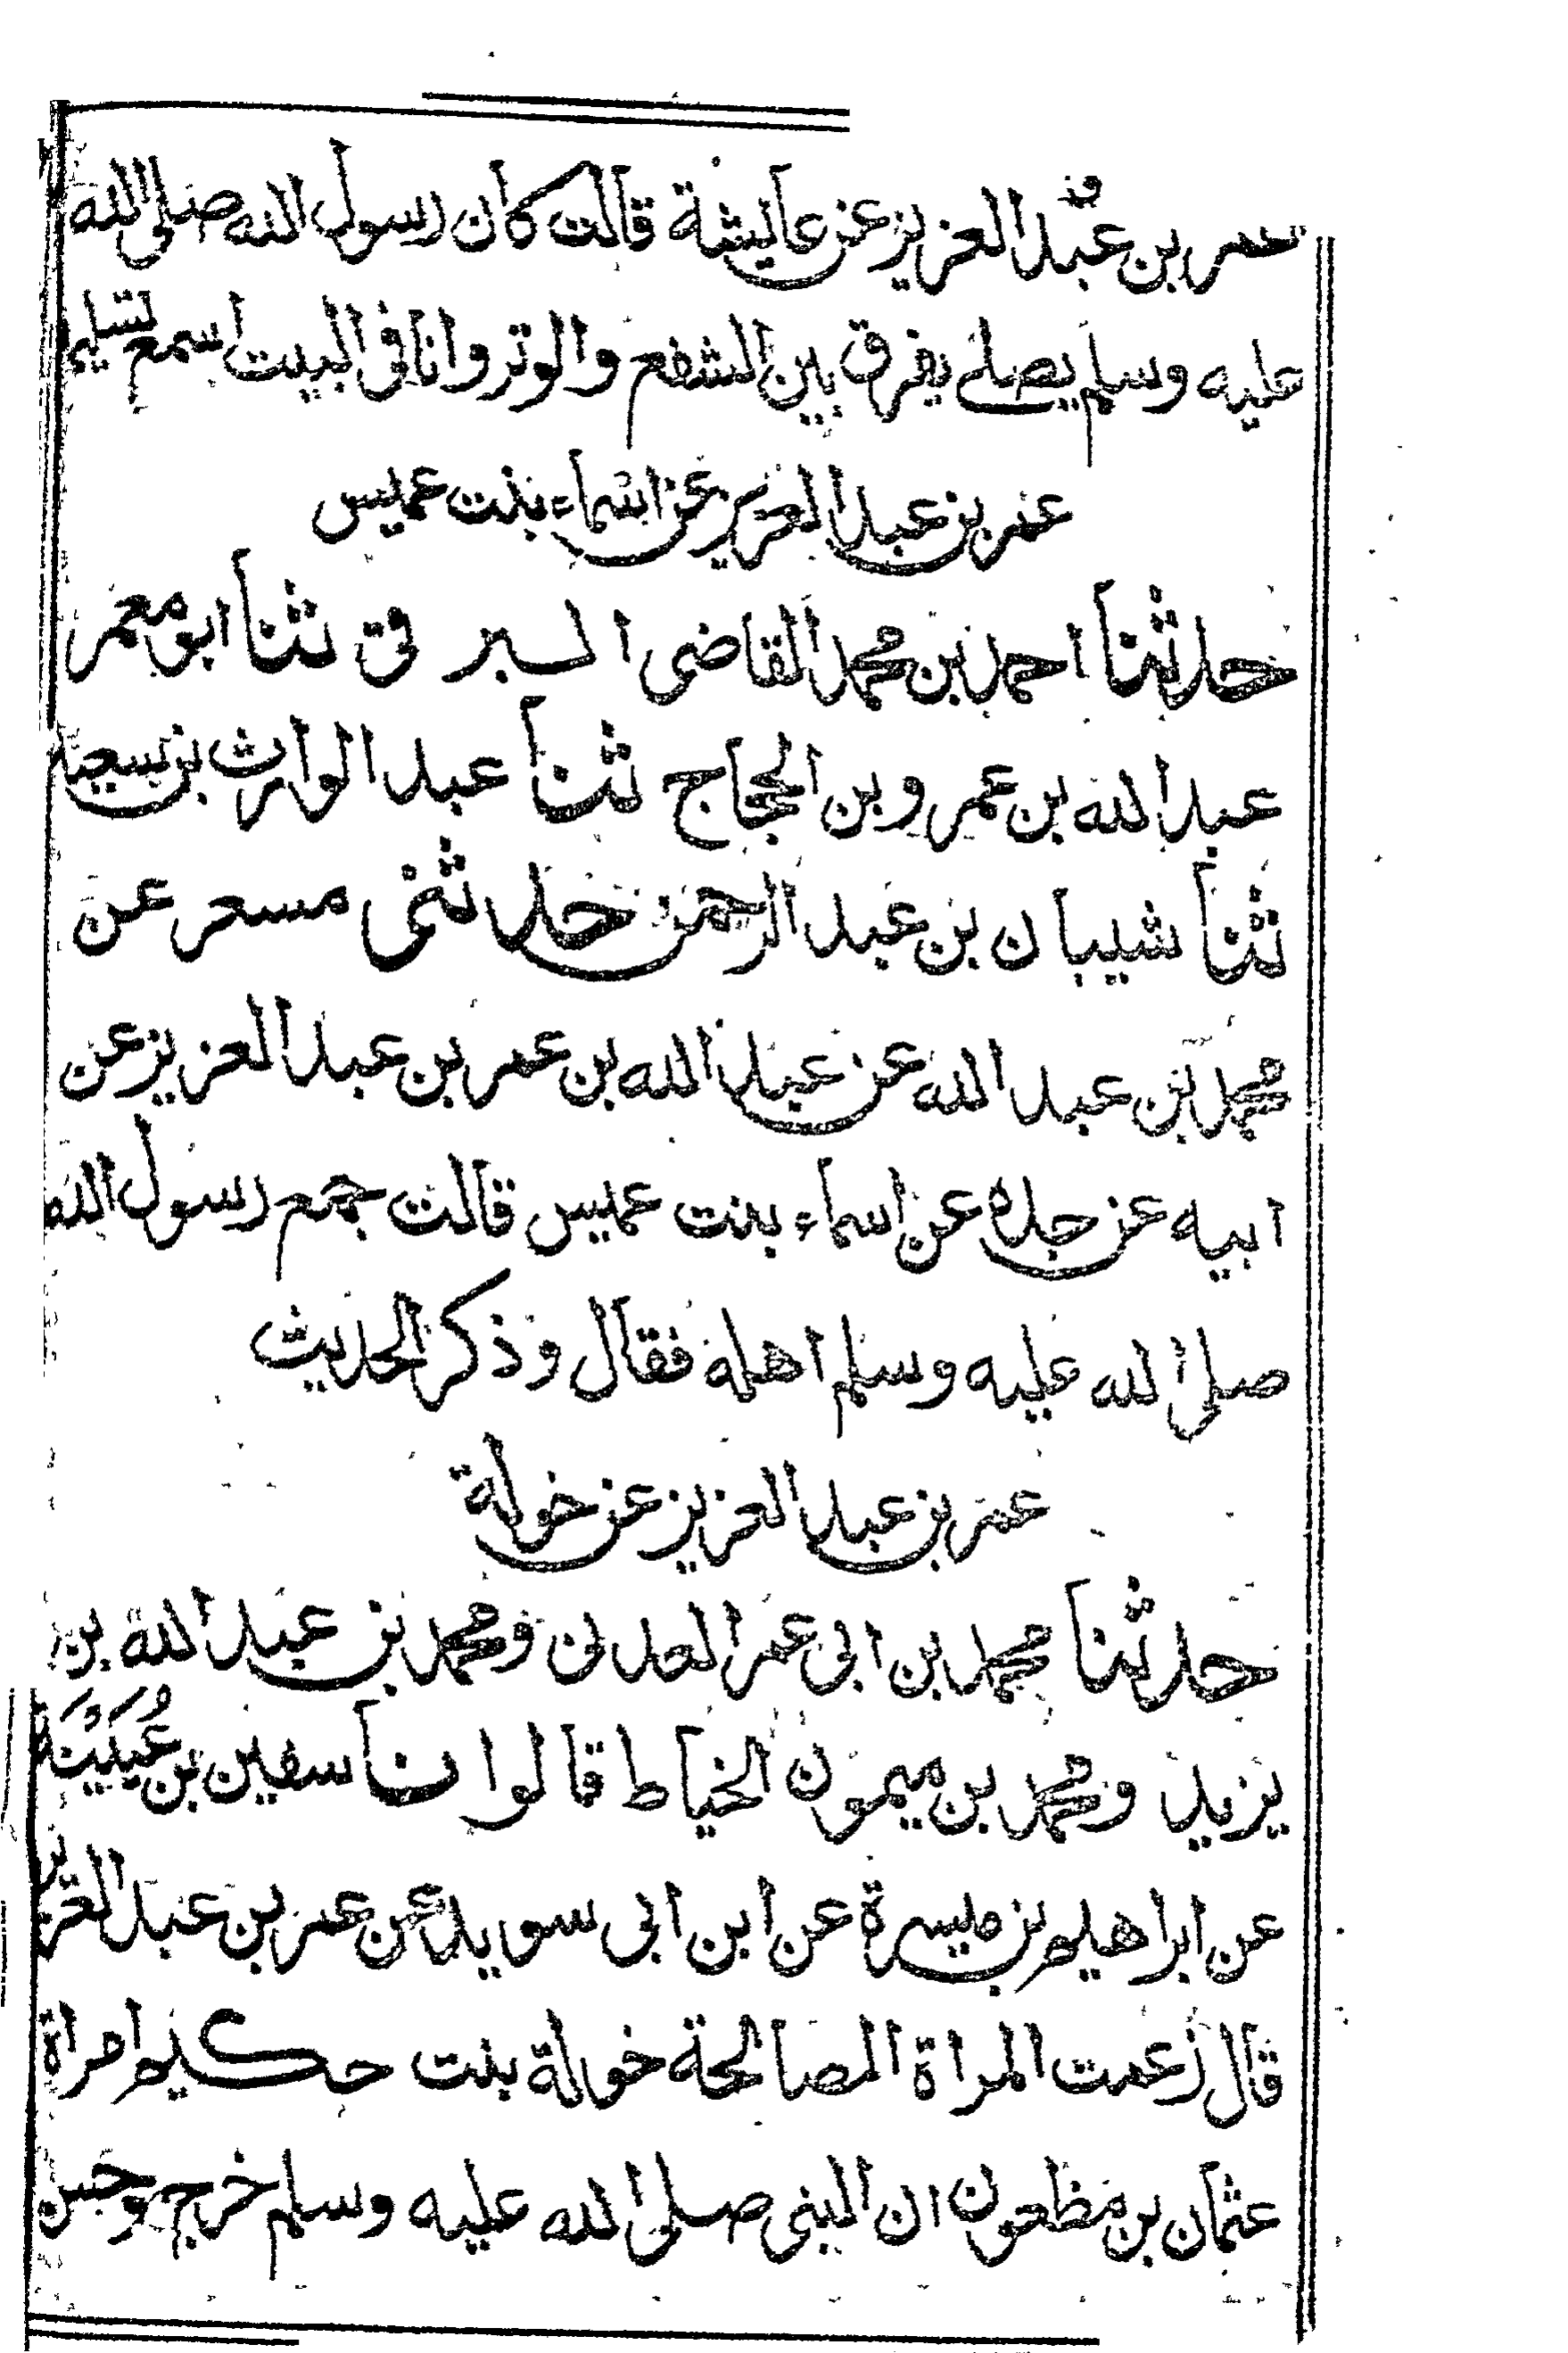 عمر بن عبد العزيز عن عايشة قالت كان رسول الله صلى الله
عليه وسلم يصلي يفرق بين الشفع والوتر وانا في البيت اسمع تسليم
عمر بن عبد العزيز عن اسماء بنت عميس
حدثنا احمد بن محمد القاضى البرتى ثنا ابو معمر
عبد الله بن عمرو بن الحجاج ثنا عبد الوارث بن سعيد
ثنا شيبان بن عبد الرحمن حدثنى مسعر عن
محمد بن عبد الله عن عبد الله بن عمر بن عبد العزيز عن
ابيه عن جده عن اسماء بنت عميس قالت جمع رسول الله
صلى الله عليه وسلم اهله فقال وذكر الحديث
عمر بن عبد العزيز عن خولة
حدثنا محمد بن ابى عمر العدنى ومحمد بن عبد الله بن
يزيد ومحمد بن ميمون الخياط قالوا نا سفين بن عُيَيْنَة
عن ابراهيم بن ميسرة عن ابن ابى سويد عن عمر بن عبد العزيز
قال زعمت المراة الصالحة خولة بنت حكيم امراة
عثمان بن مظعون ان النبى صلى الله عليه وسلم خرج